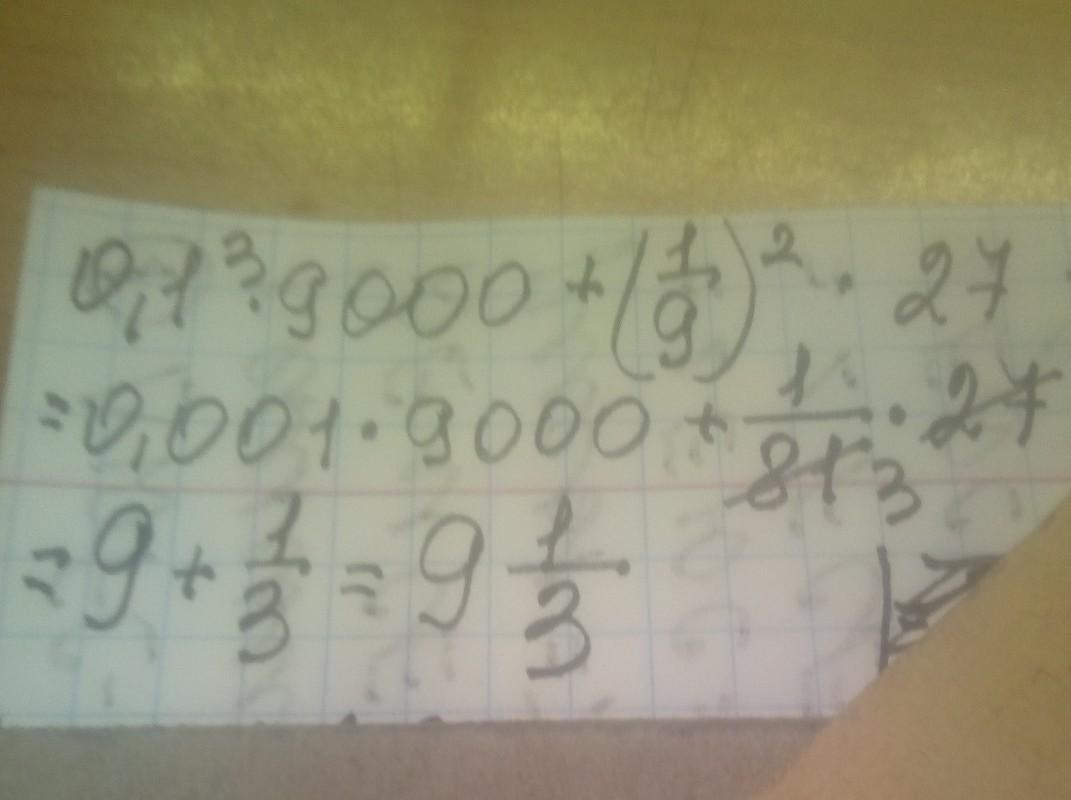 0,1³·9000+(1/9)²·27
=0,001·9000+1/81 3·27
=9+1/3=9 1/3